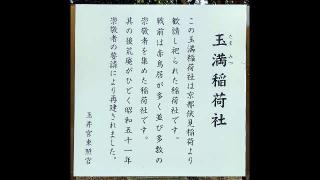 玉満稲荷社
たまみつ
この玉満稲荷社は京都伏見稲荷より
勧請し祀られた稲荷社です。
戦前は赤鳥居が多く並び多数の
崇敬者を集めた稲荷社です。
其の後荒廃がひどく昭和五十一年
崇敬者の奉讃により再建されました。
玉井宮東照宮